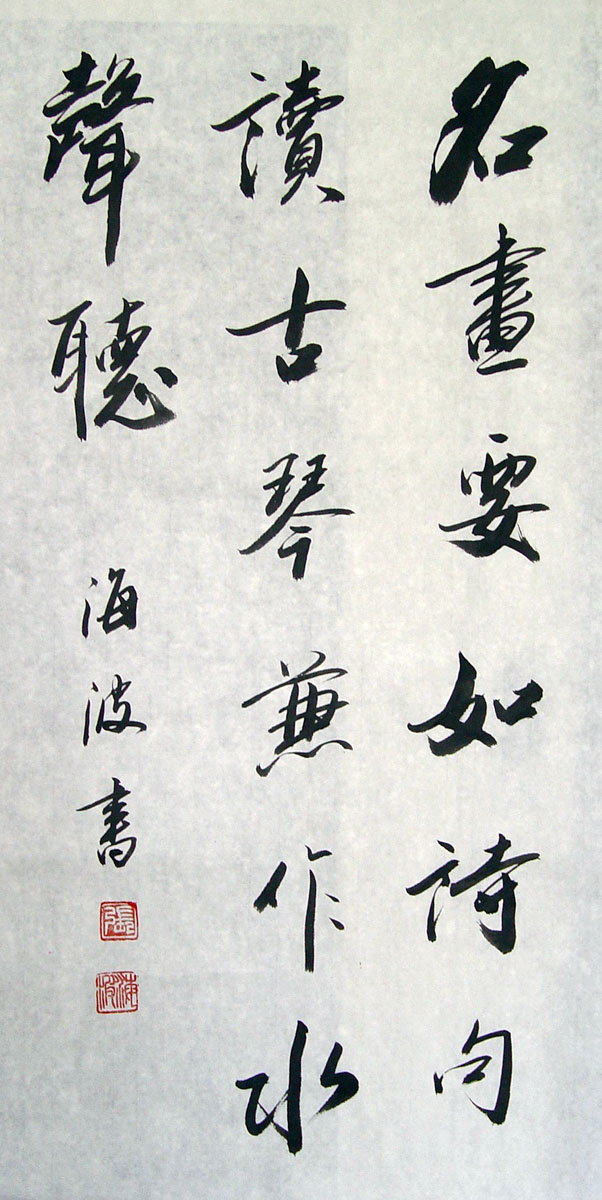 名畫要如詩句
讀古琴兼作水
聲聽
海波書
張
海波